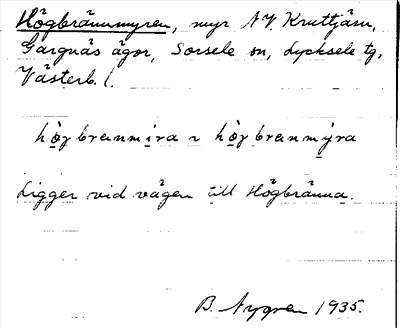 Högbrännmyren, myr N.V. Kruttjärn,
Gargnäs ägor, Sorsele sn, Lycksele tg,
Västerb. l.
hòγbrenmira ~ hòγbrenmyra
Ligger vid vägen till Högbränna.
B. Nygren 1935.